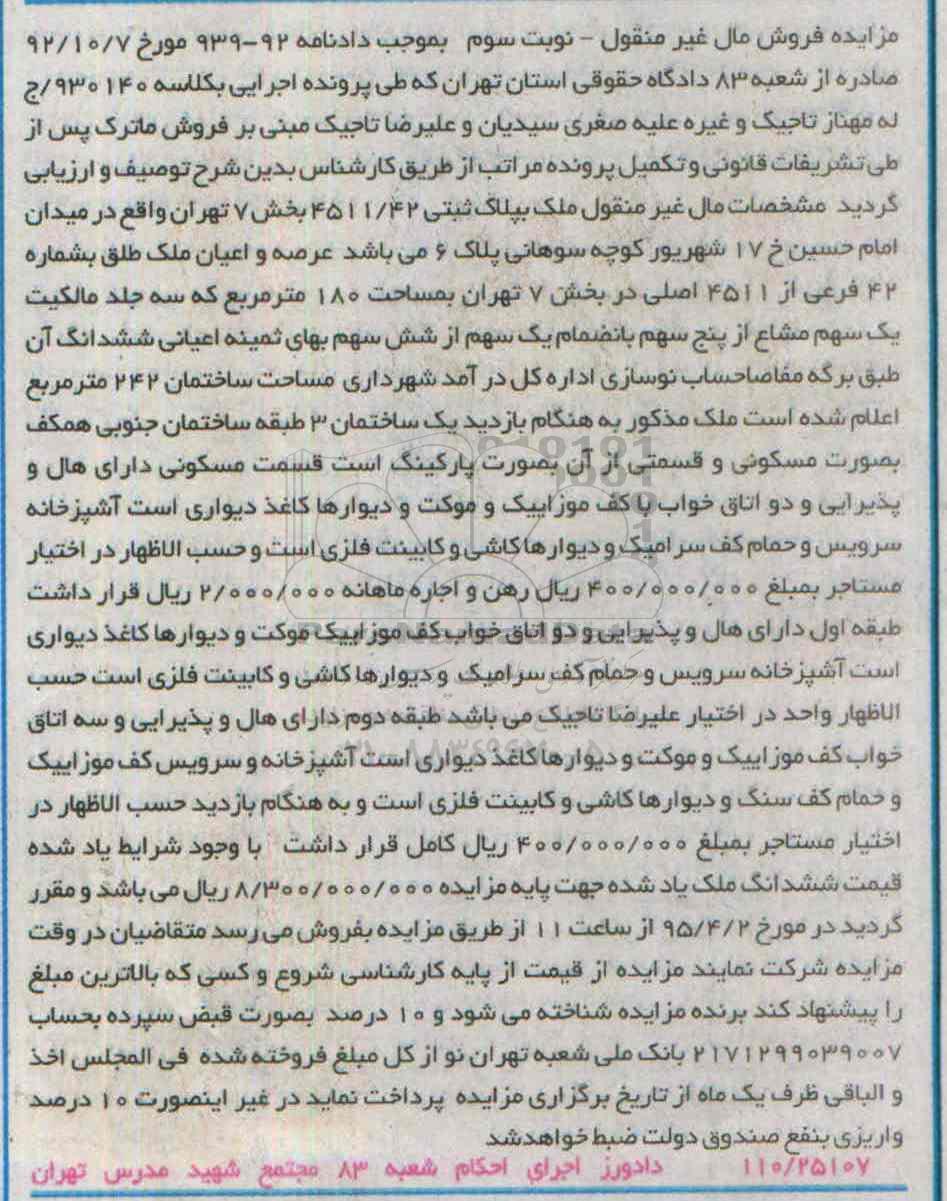 مزایده فروش مال غیر منقول - نوبت سوم بموجب دادنامه ۹۲-۹۳۹ مورخ ۹۲/۱۰/۷
صادره از شعبه ۸۳ دادگاه حقوقی استان تهران که طی پرونده اجرایی بکلاسه ۹۳۰۱۴۰/ج
له مهناز تاجیک و غیره علیه صغری سیدیان و علیرضا تاجیک مبنی بر فروش ماترک پس از
طی تشریفات قانونی و تکمیل پرونده مراتب از طریق کارشناس بدین شرح توصیف و ارزیابی
گردید مشخصات مال غیر منقول ملک بپلاک ثبتی ۴۵۱۱/۴۲ بخش ۷ تهران واقع در میدان
امام حسین خ ۱۷ شهریور کوچه سوهانی پلاک ۶ می باشد عرصه و اعیان ملک طلق بشماره
۴۲ فرعی از ۴۵۱۱ اصلی در بخش ۷ تهران بمساحت ۱۸۰ مترمربع که سه جلد مالکیت
یک سهم مشاع از پنج سهم بانضمام یک سهم از شش سهم بهای ثمینه اعیانی ششدانگ آن
طبق برگه مفاصاحساب نوسازی اداره کل در آمد شهرداری مساحت ساختمان ۲۴۲ مترمربع
اعلام شده است ملک مذکور به هنگام بازدید یک ساختمان ۳ طبقه ساختمان جنوبی همکف
بصورت مسکونی و قسمتی از آن بصورت پارکینگ است قسمت مسکونی دارای هال و
پذیرایی و دو اتاق خواب با کف موزاییک و موکت و دیوارها کاغذ دیواری است آشپزخانه
سرویس و حمام کف سرامیک و دیوارها کاشی و کابینت فلزی است و حسب الاظهار در اختیار
مستاجر بمبلغ ۴۰۰/۰۰۰/۰۰۰ ریال رهن و اجاره ماهانه ۲/۰۰۰/۰۰۰ ریال قرار داشت
طبقه اول دارای هال و پذیرایی و دو اتاق خواب کف موزاییک موکت و دیوارها کاغذ دیواری
است آشپزخانه سرویس و حمام کف سرامیک و دیوارها کاشی و کابینت فلزی است حسب
الاظهار واحد در اختیار علیرضا تاجیک می باشد طبقه دوم دارای هال و پذیرایی و سه اتاق
خواب کف موزاییک و موکت و دیوارها کاغذ دیواری است آشپزخانه و سرویس کف موزاییک
و حمام کف سنگ و دیوارها کاشی و کابینت فلزی است و به هنگام بازدید حسب الاظهار در
اختیار مستاجر بمبلغ ۴۰۰/۰۰۰/۰۰۰ ریال کامل قرار داشت با وجود شرایط یاد شده
قیمت ششدانگ ملک یاد شده جهت پایه مزایده ۸/۳۰۰/۰۰۰/۰۰۰ ریال می باشد و مقرر
گردید در مورخ ۹۵/۴/۲ از ساعت ۱۱ از طریق مزایده بفروش می رسد متقاضیان در وقت
مزایده شرکت نمایند مزایده از قیمت از پایه کارشناسی شروع و کسی که بالاترین مبلغ
را پیشنهاد کند برنده مزایده شناخته می شود و ۱۰ درصد بصورت قبض سپرده بحساب
۲۱۷۱۲۹۹۰۳۹۰۰۷ بانک ملی شعبه تهران نو از کل مبلغ فروخته شده فی المجلس اخذ
و الباقی ظرف یک ماه از تاریخ برگزاری مزایده پرداخت نماید در غیر اینصورت ۱۰ درصد
واریزی بنفع صندوق دولت ضبط خواهدشد
۱۱۰/۲۵۱۰۷ دادورز اجرای احکام شعبه ۸۳ مجتمع شهید مدرس تهران